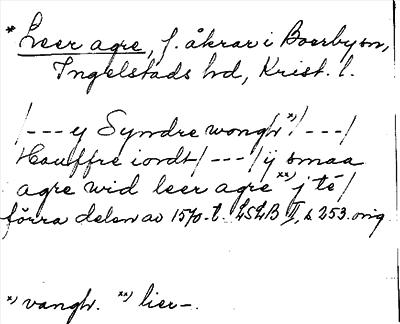 * Leer agre, f. åkrar i Boerby sn,
Ingelstads hd, Krist. l.
/---y Syndre wongh x)/---/
Hauffre iordt/---/ij smaa
agre wid leer agre xx) j té/
förra delen av 1570-t. LSLB II, s 253. orig
x) vangh. xx) lier-.